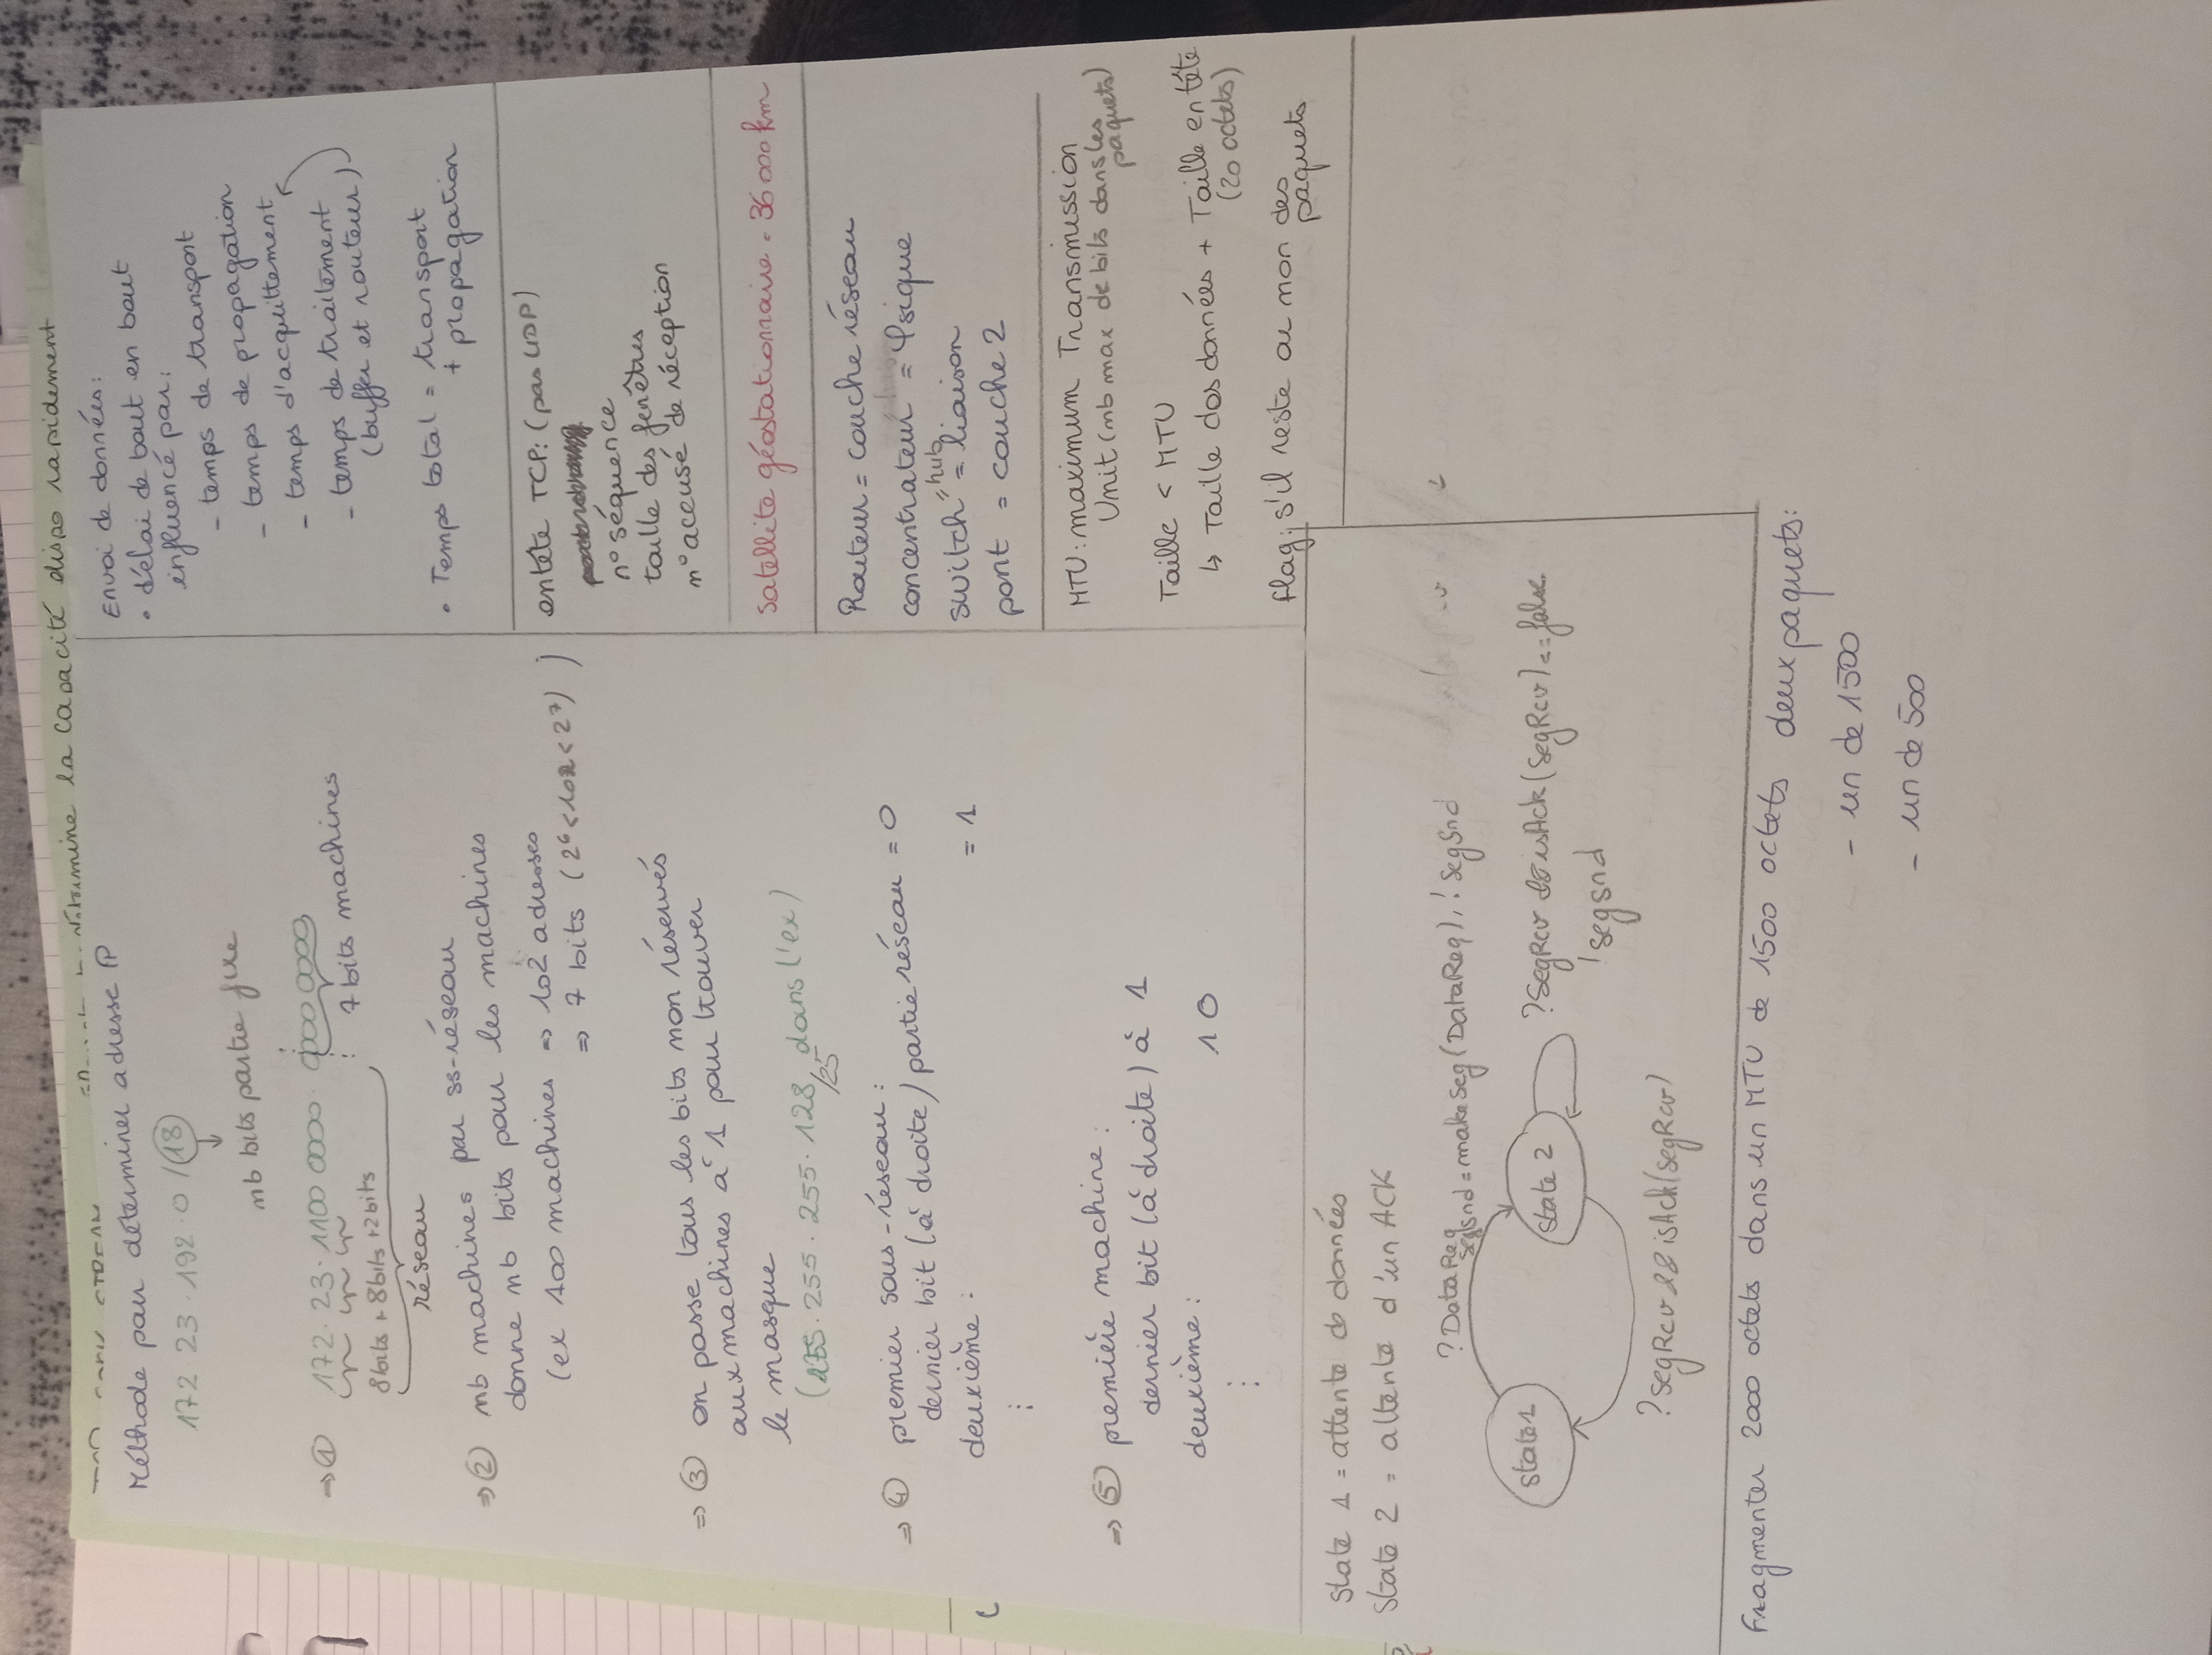 détermine la capacité dispo rapidement
Méthode pour déterminer adresse IP
172 23.192.0/18
nb bits partie fixe
⇒ ① 172.23.1100 0000.0000 0000
7 bits machines
8bits + 8bits + 2bits
réseau
⇒ ② nb machines par ss-réseau
donne nb bits pour les machines
(ex 100 machines ⇒ 102 adresses
⇒ 7 bits (2⁶<102<2⁷) )
⇒ ③ on passe tous les bits non réservés
aux machines à 1 pour trouver
le masque
(255.255.255.128 dans l'ex)
/25
⇒ ④ premier sous-réseau :
dernier bit (à droite) partie réseau = 0
deuxième : = 1
⋮
⇒ ⑤ première machine :
dernier bit (à droite) à 1
deuxième : 10
⋮
Envoi de données :
• délai de bout en bout
influencé par :
- temps de transport
- temps de propagation
- temps d'acquittement
- temps de traitement
(buffer et routeur)
• Temps total = transport
+ propagation
entête TCP : (pas UDP)
n° séquence
taille des fenêtres
n° accusé de réception
Satellite géostationnaire = 36 000 km
Routeur = couche réseau
concentrateur = φsique
= hub
switch = liaison
pont = couche 2
MTU : maximum Transmission
Unit (nb max de bits dans les
paquets)
Taille < MTU
↳ Taille des données + Taille entête
(20 octets)
Flag : s'il reste ou non des
paquets
State 1 = attente de données
State 2 = attente d'un ACK
?DataReq
SegSnd = makeSeg(DataReq), !SegSnd
state1
state 2
?SegRcv && isAck(SegRcv) == false
!segsnd
?SegRcv && isAck(SegRcv)
Fragmenter 2000 octets dans un MTU de 1500 octets deux paquets :
- un de 1500
- un de 500